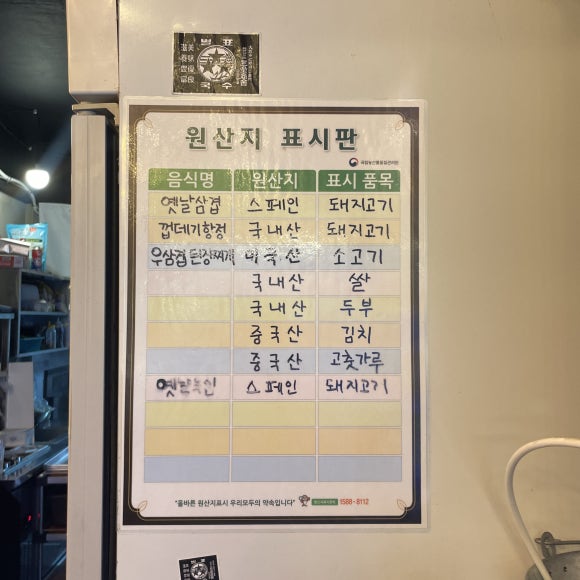 별표
국수
원산지 표시판
국립농산물품질관리원
음식명 원산지 표시 품목
옛날삼겹 스페인 돼지고기
껍데기항정 국내산 돼지고기
우삼겹된장찌개 미국산 소고기
국내산 쌀
국내산 두부
중국산 김치
중국산 고춧가루
옛날녹신 스페인 돼지고기
"올바른 원산지표시 우리모두의 약속입니다" 1588-8112